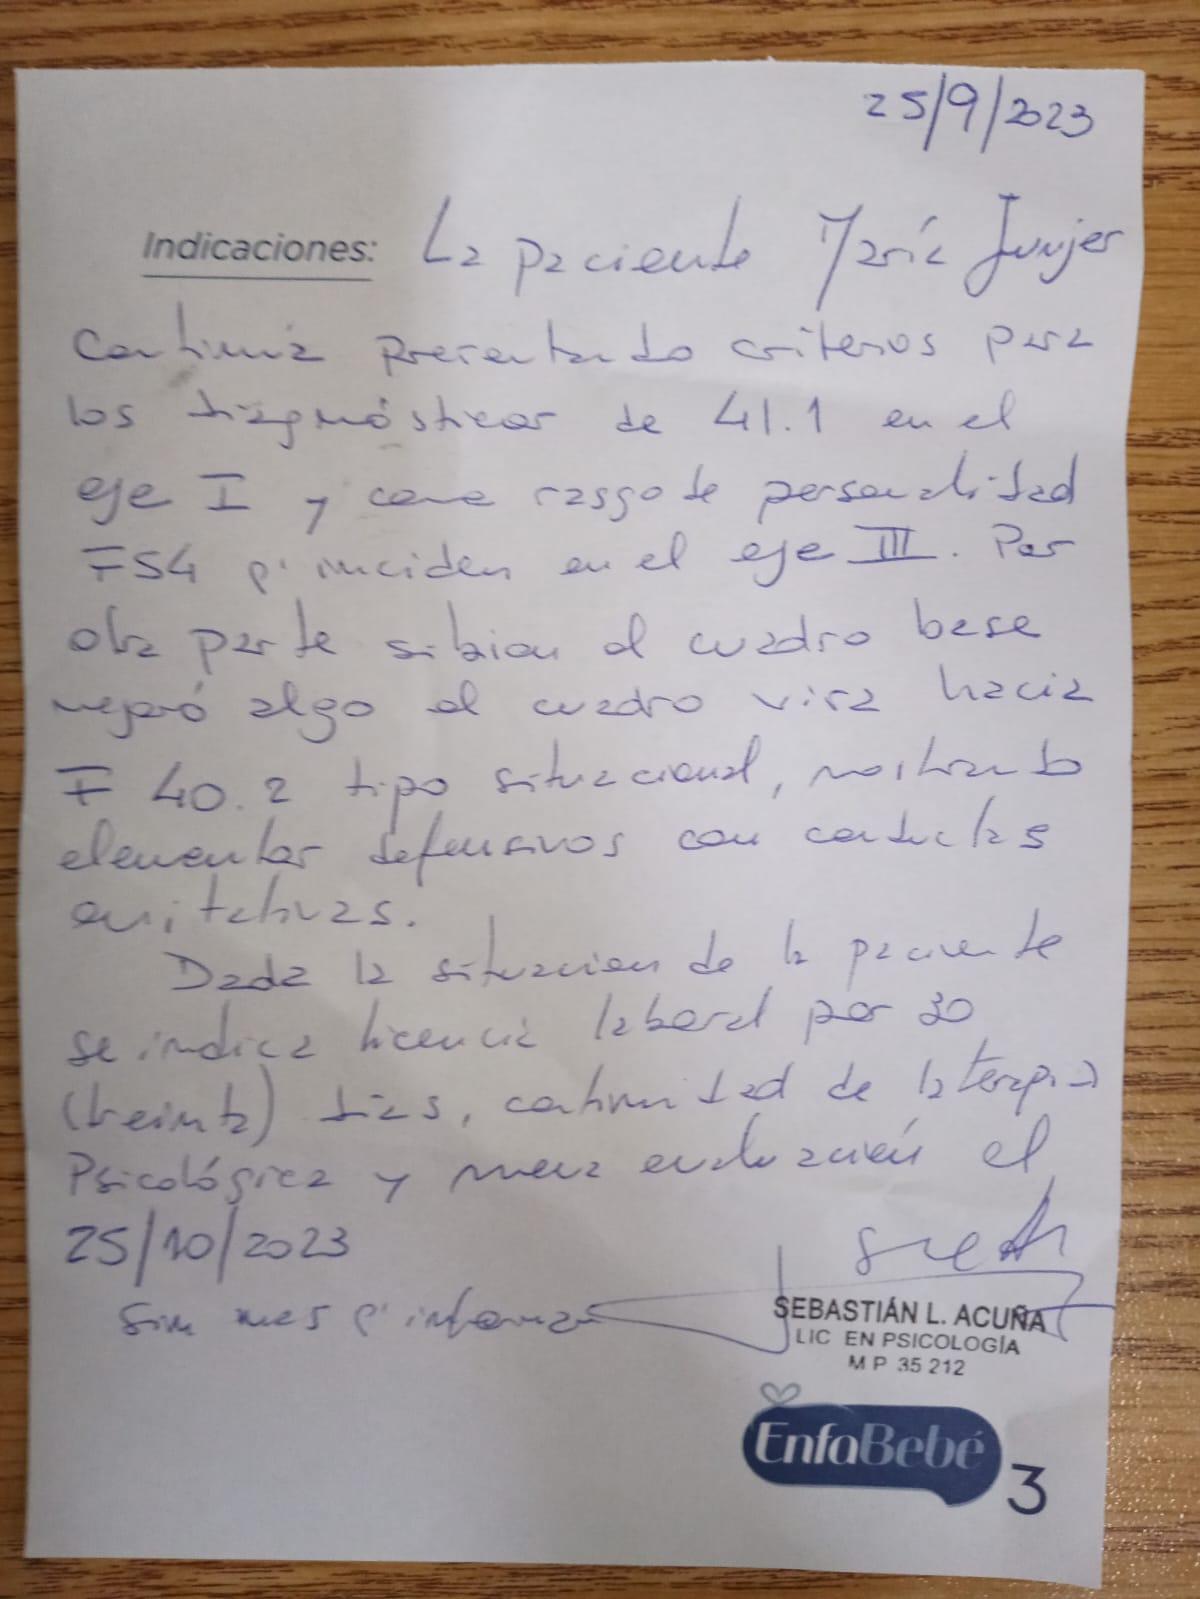 25/9/2023
Indicaciones: La paciente María Junjer
Continúa presentando criterios para
los diagnósticos de 41.1 en el
eje I y como rasgo de personalidad
F54 p' inciden en el eje III. Por
otra parte si bien el cuadro base
mejoró algo el cuadro vira hacia
F 40.2 tipo situacional, mostrando
elementos defensivos con conductas
evitativas.
Dada la situacion de la paciente
se indica licencia laboral por 30
(treinta) días, continuidad de la terapia
Psicológica y nueva evaluación el
25/10/2023
Sin mas p' informar
SEBASTIÁN L. ACUÑA
LIC EN PSICOLOGÍA
M P 35 212
EnfaBebé 3